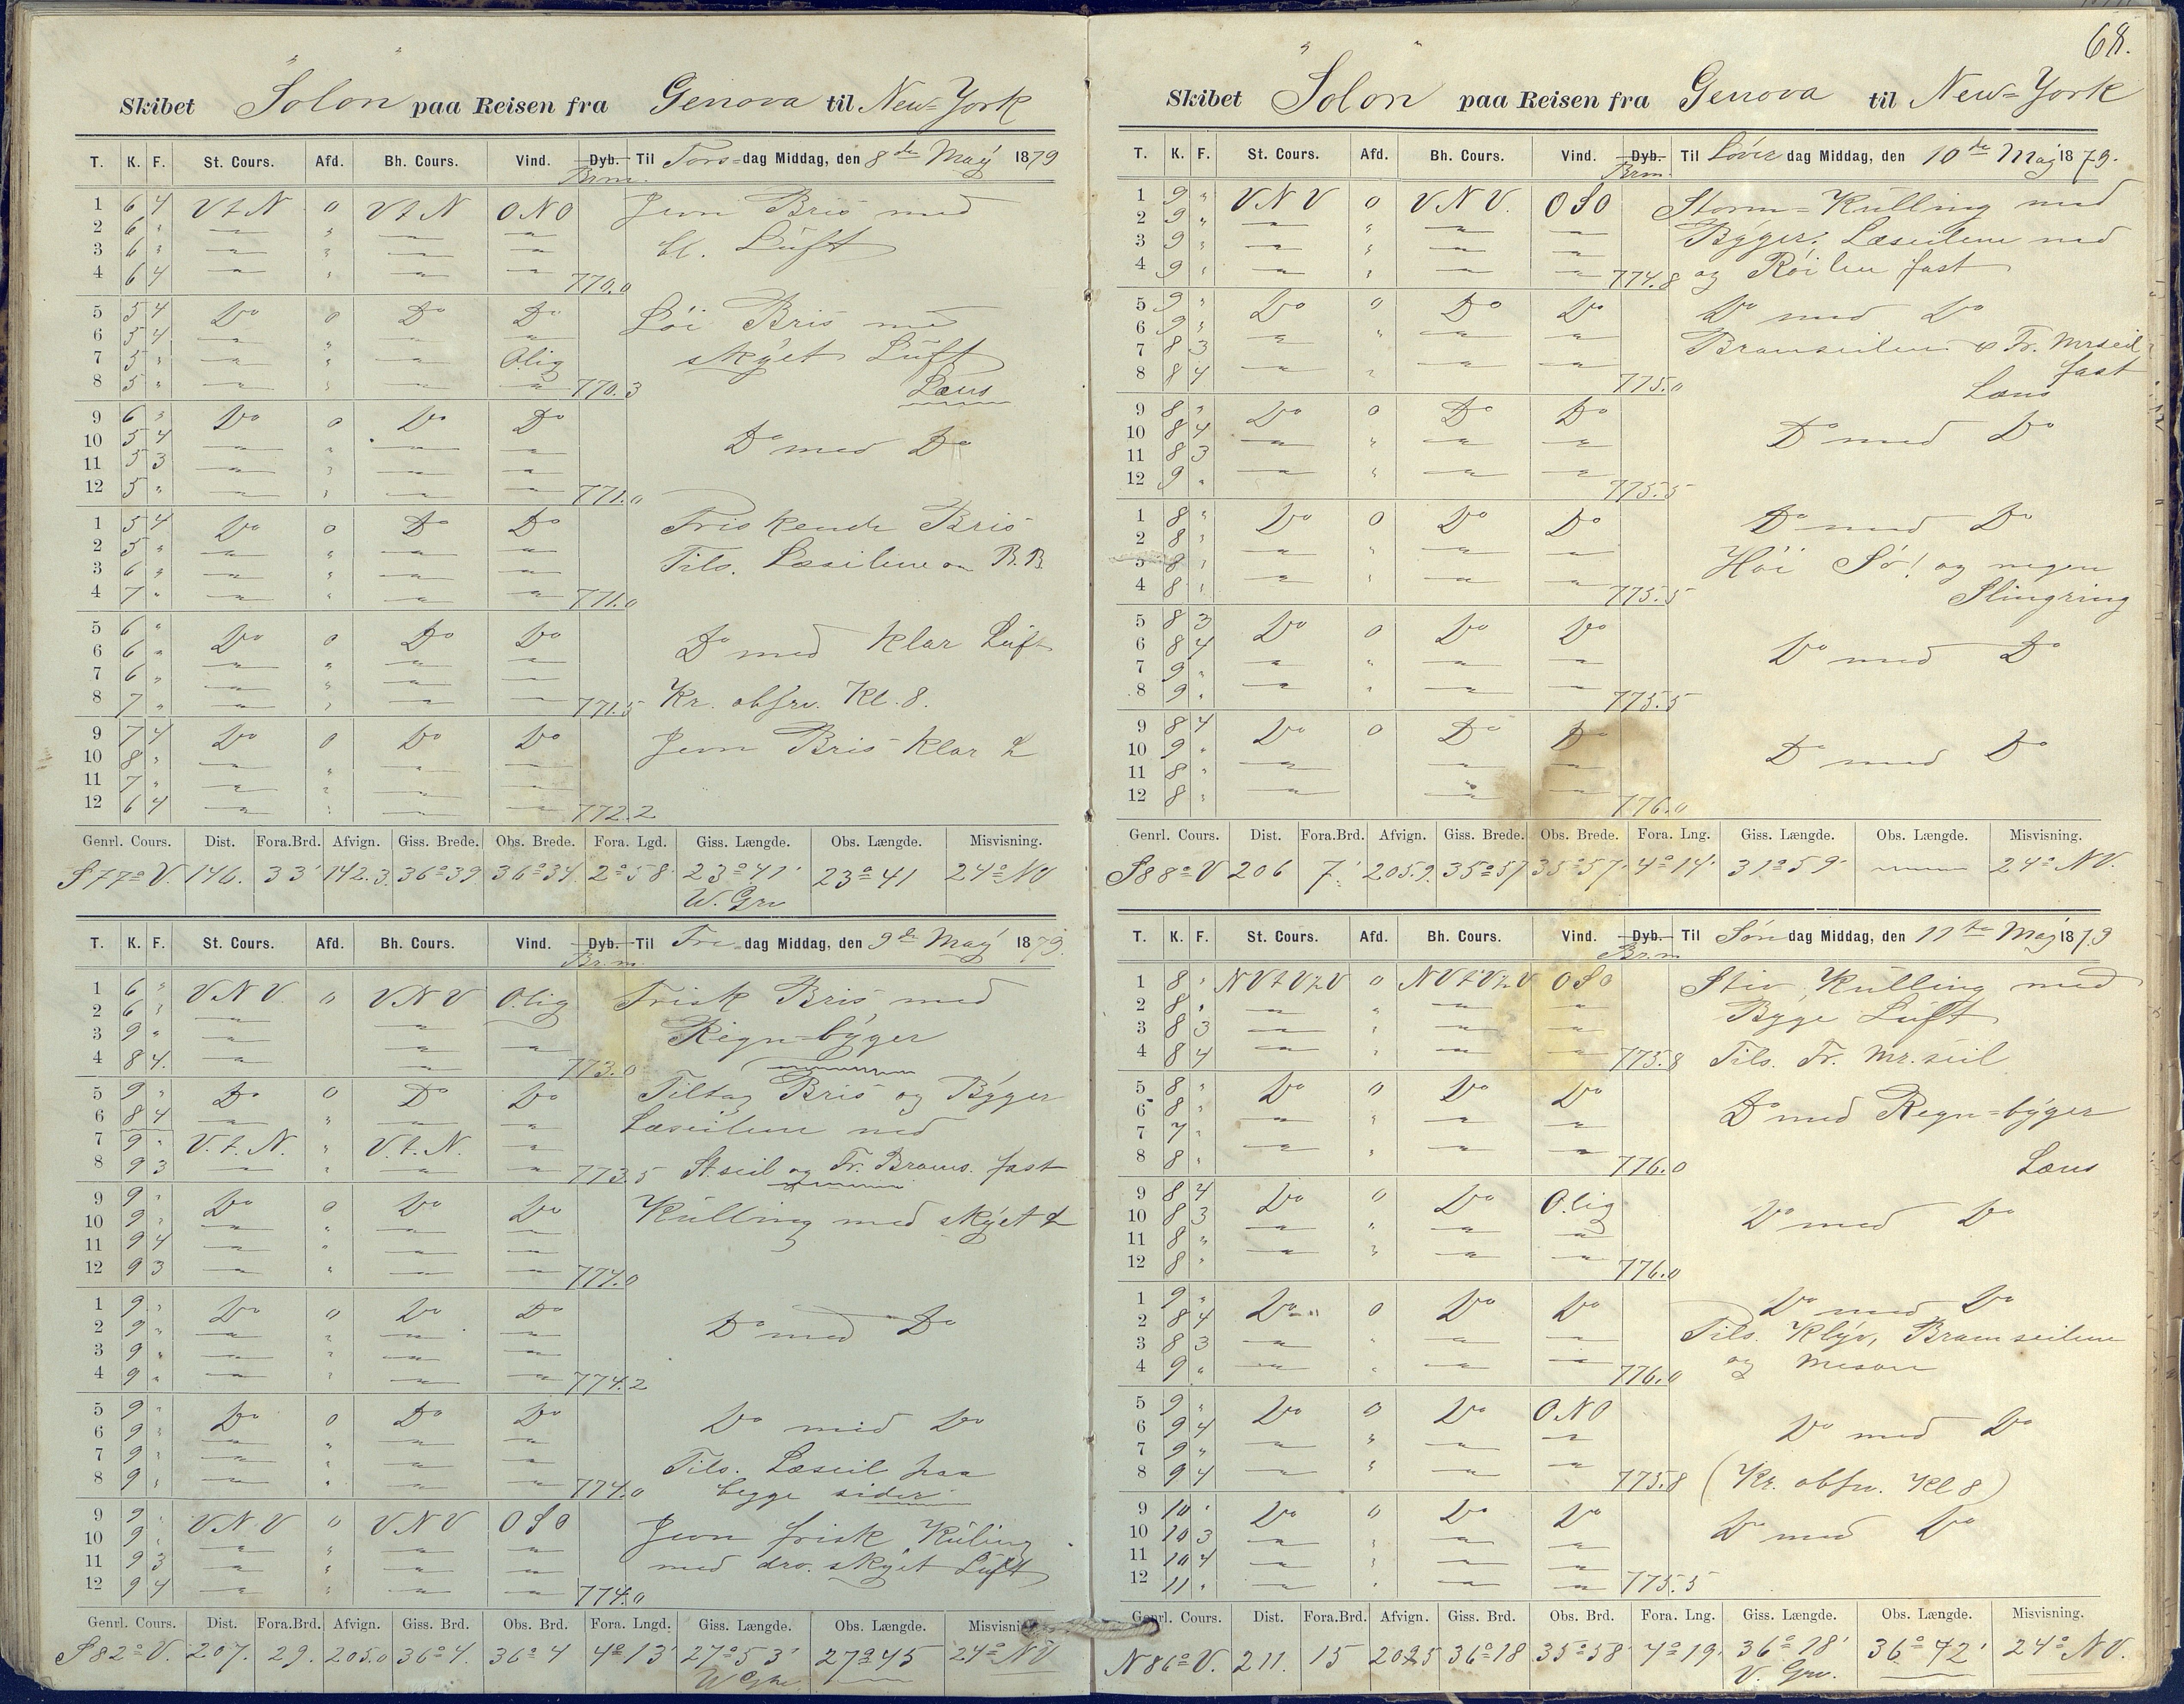 68.
Skibet "Solon" paa Reisen fra Genova til New=York
T. K. F. St. Cours. Afd. Bh. Cours. Vind. Dyb. Brm. Til Tors=dag Middag, den 8de May 1879
1 6 4 VtN 0 VtN ONO Jevn Bris med
2 6 " — " — — bl. Lüft
3 6 " — " — —
4 6 4 — " — — 770.0
5 5 4 Do 0 Do Do Löi Bris med
6 5 4 — " — — skyet Lüft
7 5 " — " — Olig
8 5 " — " — — 770.3 Læns
9 6 " Do 0 Do Do
10 5 4 — " — — Do med Do
11 5 3 — " — —
12 5 " — " — — 771.0
1 5 4 Do 0 Do Do Friskende Bris
2 5 " — " — — Tils. Læseilene om B.B
3 6 " — " — —
4 7 " — " — — 771.0
5 6 " Do 0 Do Do Do med klar Lüft
6 6 " — " — —
7 6 " — " — —
8 7 " — " — — 771.5 Kr. obsrv. Kl. 8.
9 7 4 Do 0 Do Do Jevn Bris klar L
10 8 " — " — —
11 7 " — " — —
12 6 4 — " — — 772.2
Genrl. Cours. Dist. Fora.Brd. Afvign. Giss. Brede. Obs. Brede. Fora. Lgd. Giss. Længde. Obs. Længde. Misvisning.
S77°V. 146. 33' 142.3. 36°39 36°34. 2°58. 23°41' 23°41 24°NV
W. Grv
T. K. F. St. Cours. Afd. Bh. Cours. Vind. Dyb. Brm. Til Fre dag Middag, den 9de May 1879.
1 6 " VNV. 0 VNV O.lig Frisk Bris med
2 6 " — — — Regn=byger
3 9 " — — —
4 8 4. — — — 773.0
5 9 " Do 0 Do Do Tiltag Bris og Byger
6 8 4 — " — — Læseilene ned
7 9 " V.t.N. " V.t.N. —
8 9 3 — " — — 773.5 St.seil og Fr. Brams. fast
9 9 " Do 0 Do Do Külling med skyet L
10 9 " — " — —
11 9 4 — " — —
12 9 3 — " — — 774.0
1 9 " Do 0 Do Do
2 9 " — " — — Do med Do
3 9 " — " — —
4 9 " — " — — 774.2
5 9 " Do 0 Do Do Do med Do
6 9 " — " — —
7 9 " — " — — Tils. Læseil paa
8 9 " — " — — 774.0 begge sider
9 9 " VNV 0 VNV OSO Jevn frisk Küling
10 9 " — " — — med dro. skyet Lüft
11 9 3 — " — —
12 9 4 — " — — 774.0
Genrl. Cours. Dist. Fora.Brd. Afvign. Giss. Brd. Obs. Brd. Fora. Lngd. Giss. Længde. Obs. Længde. Misvisning.
S82°V. 207. 29. 205.0 36°4. 36°4 4°13' 27°53' 27°45 24°NV
W Grv
Skibet "Solon" paa Reisen fra Genova til New=York
T. K. F. St. Cours. Afd. Bh. Cours. Vind. Dyb. Brm. Til Löver dag Middag, den 10de May 1879.
1 9 " VNV 0 VNV. OSO Storm=Külling med
2 9 " — " — — Byger. Læseilene ned
3 9 " — " — —
4 9 " — " — — 774.8 og Röilen fast
5 9 " Do 0 Do Do Do med Do
6 9 " — " — — Bramseilene & Fr. Mrseil
7 8 3 — — — fast
8 8 4 — " — — 775.0 Læns
9 8 " Do 0 Do Do
10 8 4 — " — — Do med Do
11 8 3 — " — —
12 9 " — " — — 775.5
1 8 " Do 0 Do Do Do med Do
2 8 " — " — —
3 8 " — " — — Höi Sö! og megen
4 8 " — " — — 775.5 Slingring
5 8 3 Do 0 Do Do
6 8 4 — " — — Do med Do
7 9 " — " — —
8 9 " — " — — 775.5
9 8 4 Do 0 Do Do
10 9 " — — — Do med Do
11 8 " — — —
12 8 " — — — 776.0
Genrl. Cours. Dist. Fora.Brd. Afvign. Giss. Brede. Obs. Brede. Fora. Lng. Giss. Længde. Obs. Længde. Misvisning.
S88°V 206 7' 205.9. 35°57 35°57' 4°14' 31°59' — 24°NV.
T. K. F. St. Cours. Afd. Bh. Cours. Vind. Dyb. Brm Til Sön dag Middag, den 11te May 1879
1 8 " NVtV½V 0 NVtV½V OSO Stiv Külling med
2 8 " — " — — Byge Lüft
3 8 3 — " — —
4 8 4 — " — — 775.8 Tils. Fr. Mr.seil
5 8 " Do 0 Do Do
6 8 " — " — — Do med Regn=byger
7 7 " — " — —
8 8 " — " — — 776.0 Læns
9 8 4 Do 0 Do O.lig
10 8 3 — " — — Do med Do
11 8 " — " — —
12 8 " — " — — 776.0
1 9 " Do 0 Do Do Do med Do
2 8 4 — — — Tils. Klyv, Bramseilene
3 8 3 — " — — og Mesan
4 9 " — " — — 776.0
5 9 " Do 0 Do ONO
6 9 4 — " — — Do med Do
7 9 " — " — —
8 9 4 — " — — 775.8 (Kr. obsrv. Kl 8)
9 10 " Do 0 Do Do
10 10 3 — " — — Do med Do
11 10 4 — " — —
12 11 " — " — — 775.5
Genrl. Cours. Dist. Fora.Brd. Afvign. Giss. Brd. Obs. Brd. Fora. Lng. Giss. Længde. Obs. Længde. Misvisning.
N86°V. 211. 15 36°18 35°58' 4°19. 36°18' 36°12' 24°NV.
V. Grv.